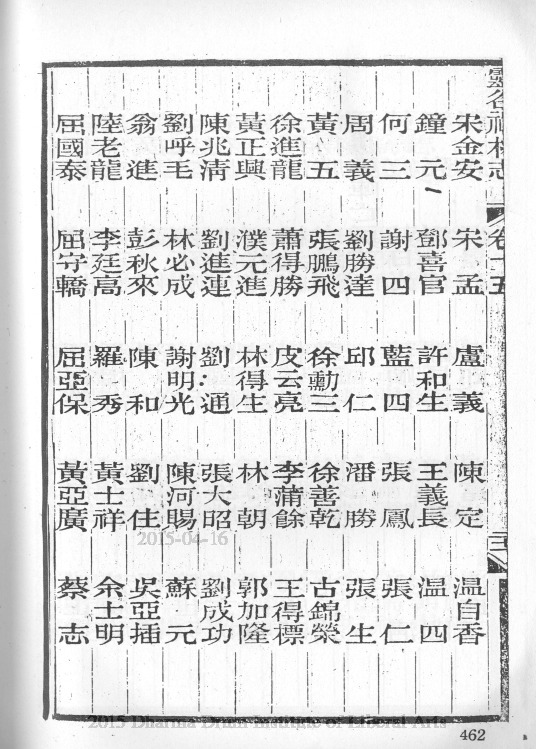 靈谷禪林志 卷十五
宋金安 宋孟 盧義 陳定 温自香
鐘元 鄧喜官 許和生 王義長 温四
何三 謝四 藍四 張鳳 張仁
周義 劉勝達 邱仁 潘勝 張生
黃五 張鵬飛 徐勳三 徐善乾 古錦榮
徐進龍 蕭得勝 皮云亮 李蒲餘 王得標
黃正興 濮元進 林得生 林朝 郭加隆
陳兆清 劉進連 劉通 張大昭 劉成功
劉呼毛 林必成 謝明光 陳河賜 蘇元
翁進 彭秋來 陳和 劉佳 吳亞插
陸老龍 李廷高 羅秀 黃士祥 余士明
屈國泰 屈守轎 屈亞保 黃亞廣 蔡志
2015-04-16
2015 Dharma Drum Institute of Liberal Arts
462